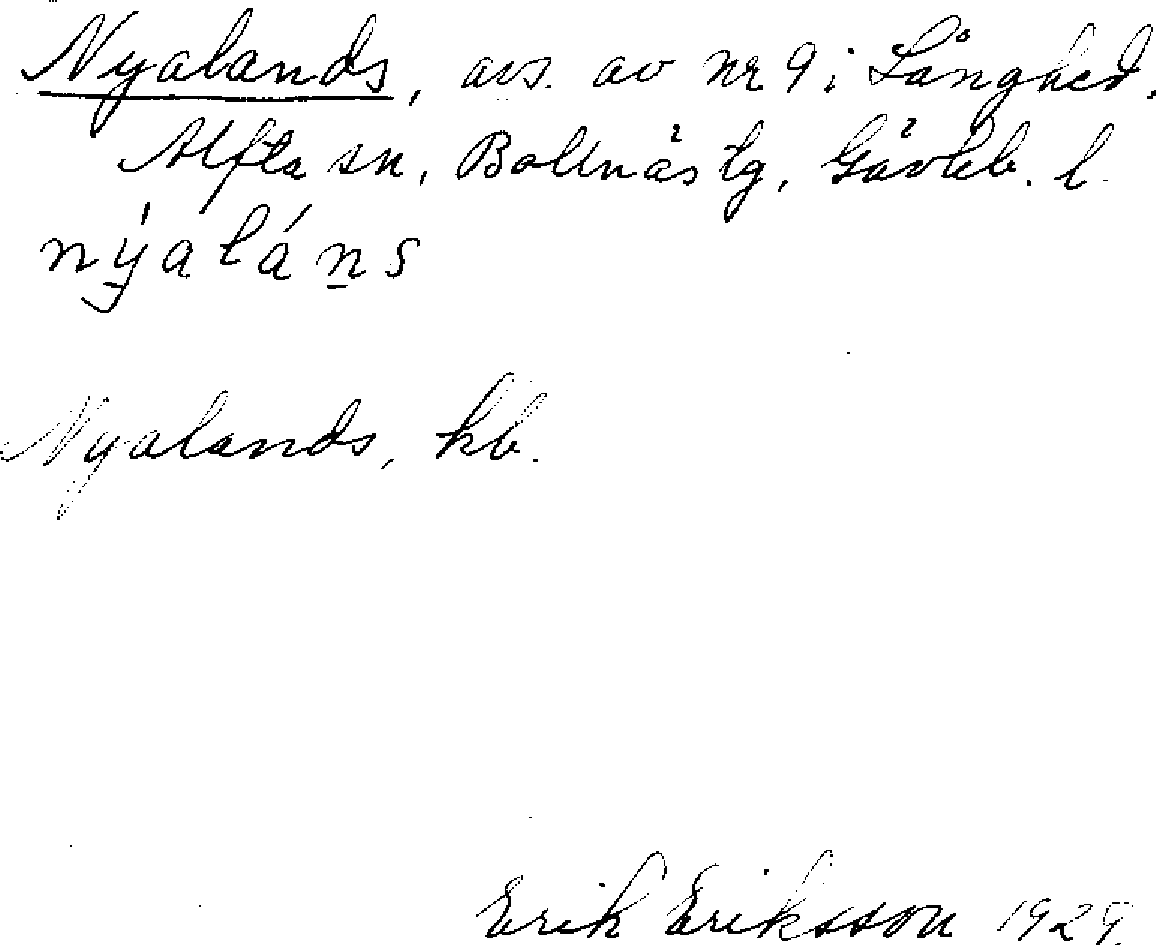 Nyalands, avs. av nr 9 i Långhed,
Alfta sn, Bollnäs tg, Gävleb. l.
nýaláns
Nyalands, kb.
Erik Eriksson 1929.